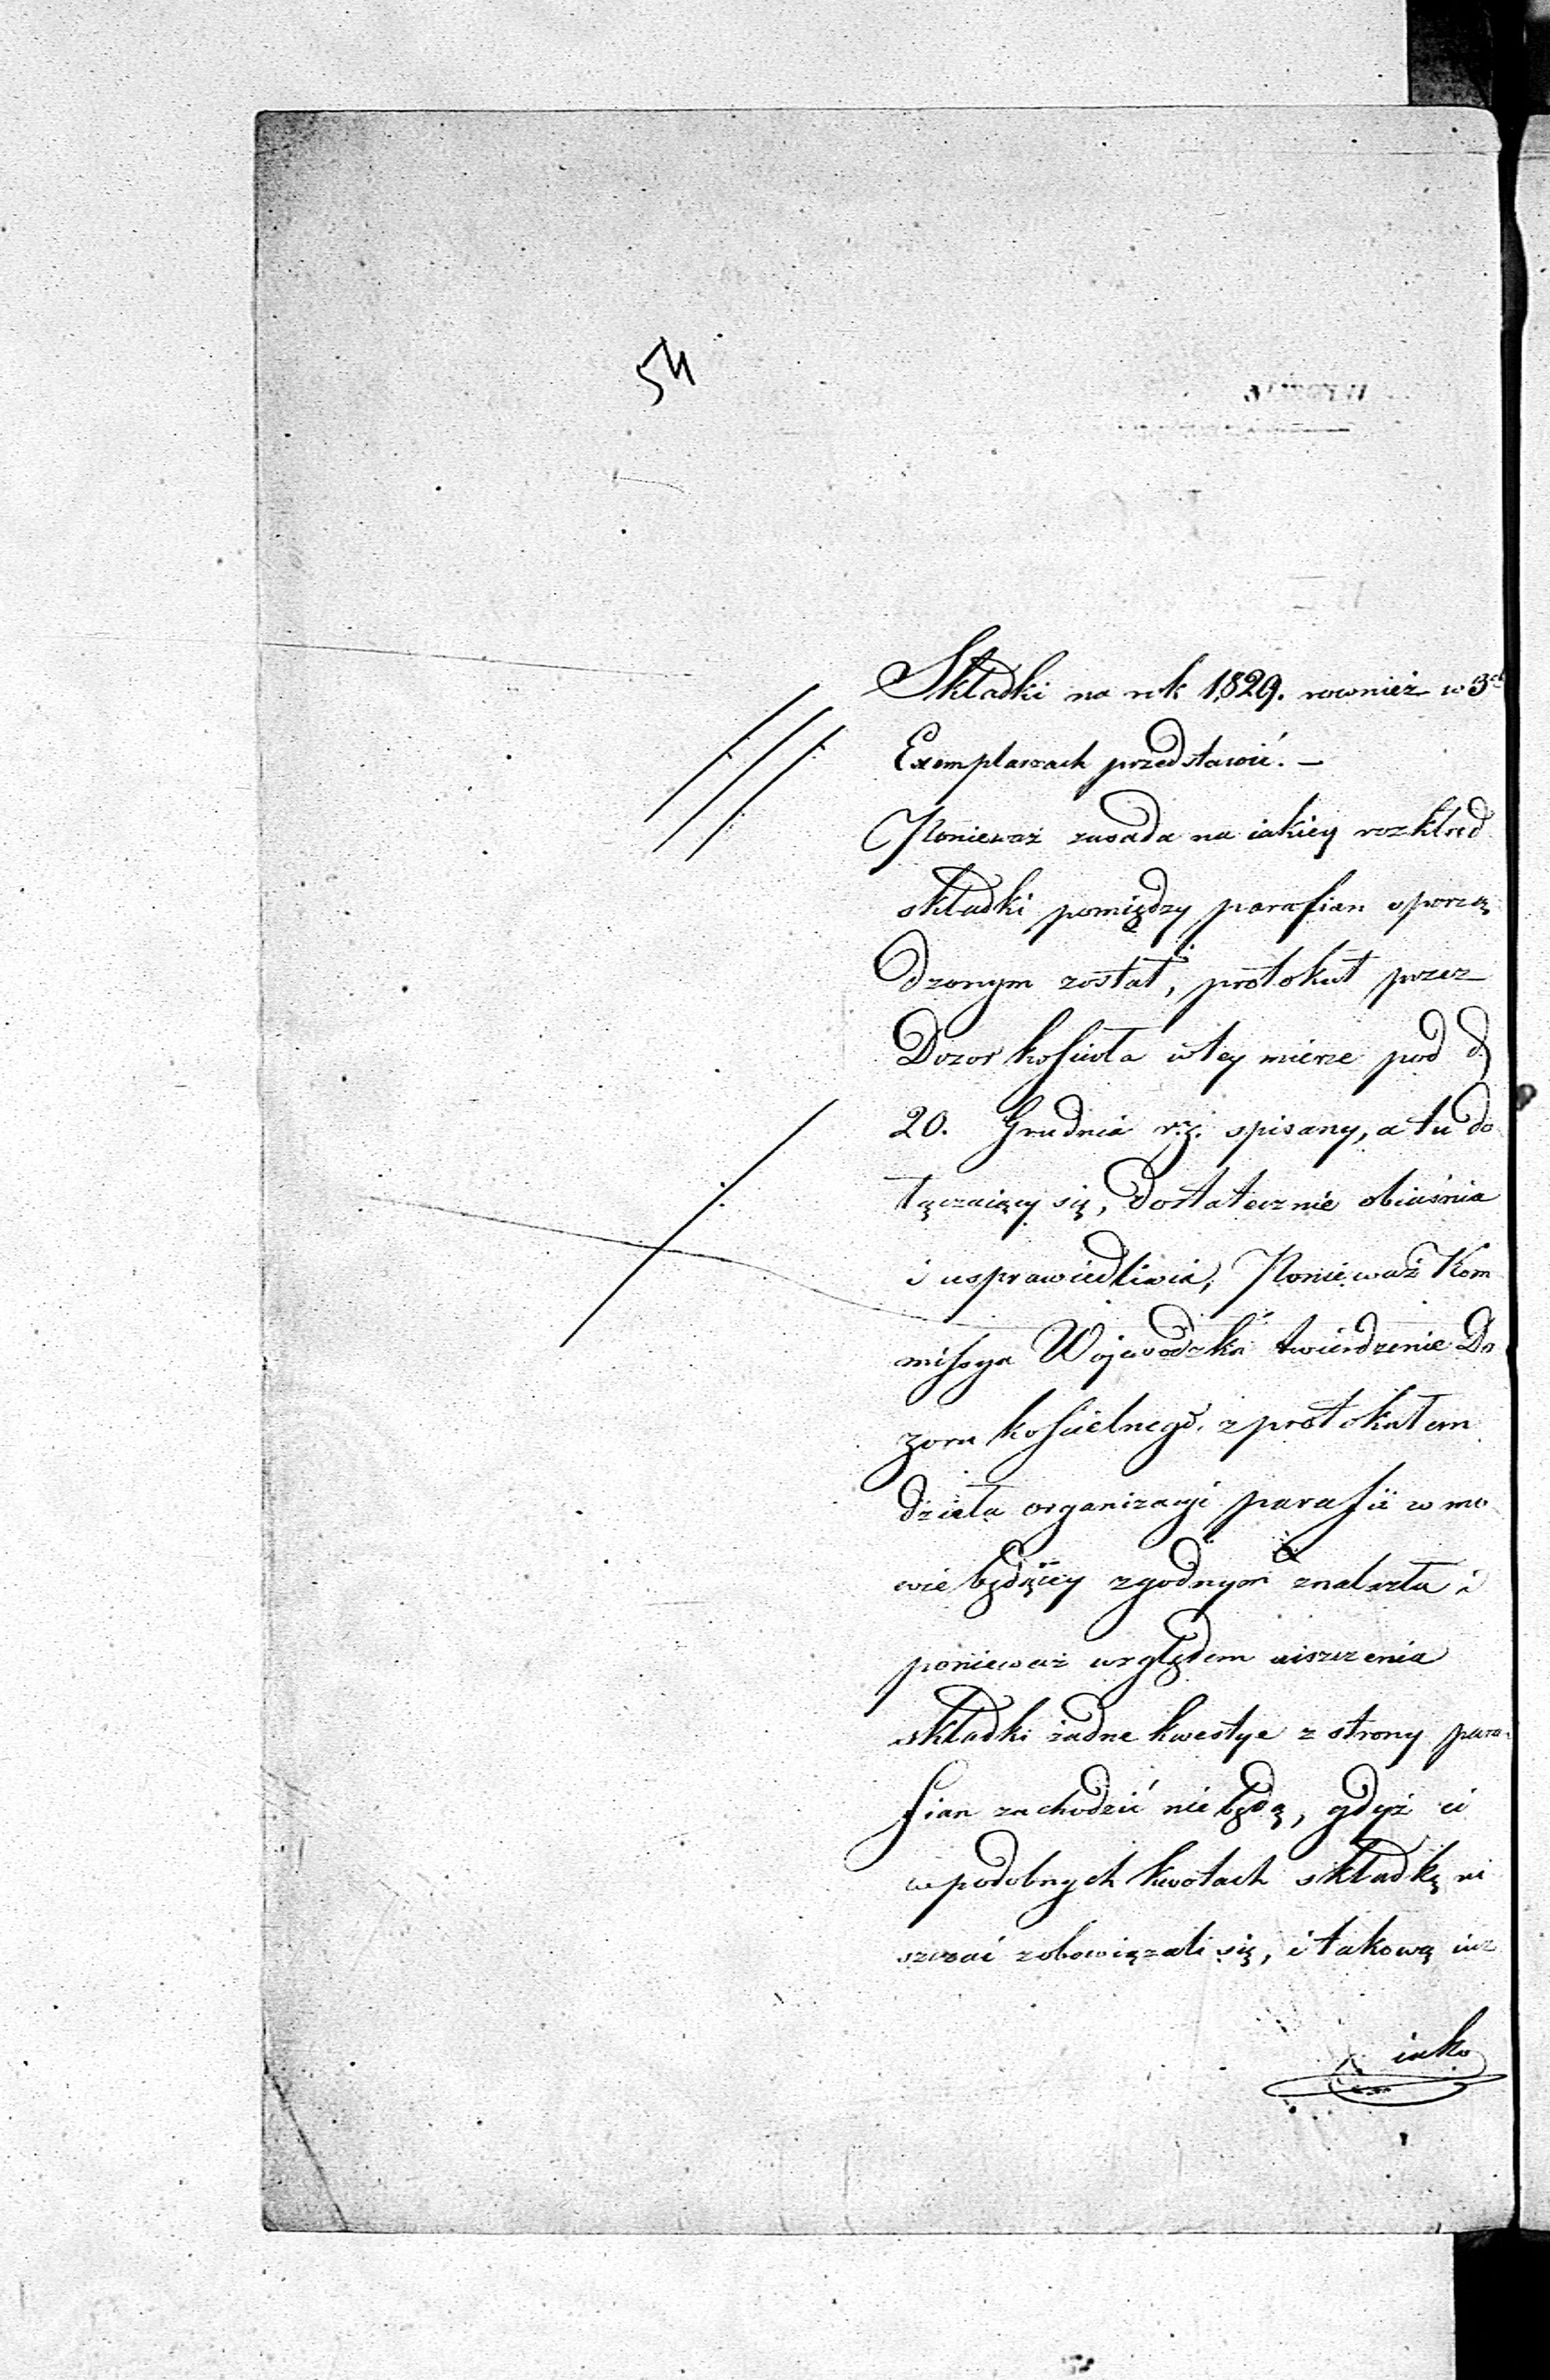 54
Składki na rok 1829. rownież w 3ch
Exemplarzach przedstawić. –
Ponieważ zasada na iakiey rozkład
składki pomiędzy parafian uporzą
dzonym został, protokuł przez
Dozor kościoła w tey mierze pod d.
20. Grudnia r. z. spisany, a tu do
łączaiący się, dostatecznie obiaśnia
i usprawiedliwia, Ponieważ Kom
missya Wojewodzka twierdzenie Do
zoru kościelnego, z protokułem
dzieła organizacyi parafii w mo
wie będącey zgodnym znalazła i
ponieważ względem uiszczenia
składki żadne kwestye z strony para
fian zachodzić nie będą, gdyż ci
w podobnych kwotach składkę ui
szczać zobowiązali się, i takową iuż
iako